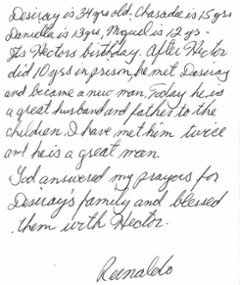 Desiray is 34 yrs old. Chasadie is 15 yrs
Daniella is 13 yrs, Miguel is 12 yrs.
It's Hectors birthday. After Hector
did 10 yrs in prison, he met Desiray
and became a new man. Today he is
a great husband and father to the
children. I have met him twice
and he is a great man.
God answered my prayers for
Desiray's family and blessed
them with Hector.
Reinaldo